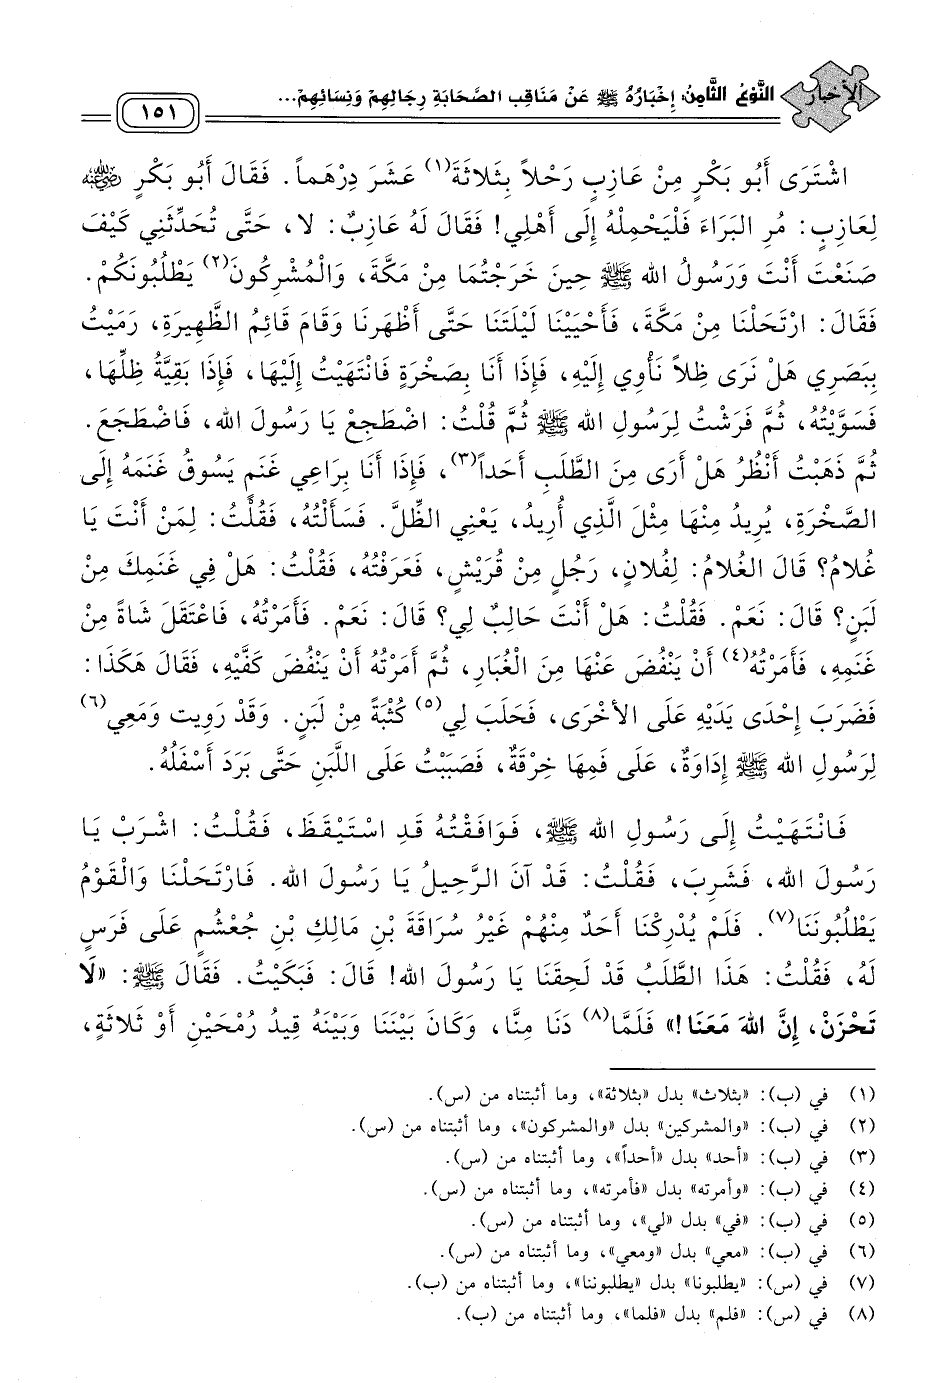 الأخبار
النَّوْعُ الثَّامِنُ: إِخْبَارُهُ ﷺ عَنْ مَنَاقِبِ الصَّحَابَةِ رِجَالِهِمْ وَنِسَائِهِمْ...
١٥١
اشْتَرَى أَبُو بَكْرٍ مِنْ عَازِبٍ رَحْلاً بِثَلاثَةَ(١) عَشَرَ دِرْهَماً. فَقَالَ أَبُو بَكْرٍ رضي الله عنه
لِعَازِبٍ: مُرِ البَرَاءَ فَلْيَحْمِلْهُ إِلَى أَهْلِي! فَقَالَ لَهُ عَازِبٌ: لا، حَتَّى تُحَدِّثَنِي كَيْفَ
صَنَعْتَ أَنْتَ وَرَسُولُ الله ﷺ حِينَ خَرَجْتُمَا مِنْ مَكَّةَ، وَالْمُشْرِكُونَ(٢) يَطْلُبُونَكُمْ.
فَقَالَ: ارْتَحَلْنَا مِنْ مَكَّةَ، فَأَحْيَيْنَا لَيْلَتَنَا حَتَّى أَظْهَرنَا وَقَامَ قَائِمُ الظَّهِيرَةِ، رَمَيْتُ
بِبَصَرِي هَلْ نَرَى ظِلاً نَأْوِي إِلَيْهِ، فَإِذَا أَنَا بِصَخْرَةٍ فَانْتَهَيْتُ إِلَيْهَا، فَإِذَا بَقِيَّةُ ظِلِّهَا،
فَسَوَّيْتُهُ، ثُمَّ فَرَشْتُ لِرَسُولِ الله ﷺ ثُمَّ قُلْتُ: اضْطَجِعْ يَا رَسُولَ الله، فَاضْطَجَعَ.
ثُمَّ ذَهَبْتُ أَنْظُرُ هَلْ أَرَى مِنَ الطَّلَبِ أَحَداً(٣)، فَإِذَا أَنَا بِرَاعِي غَنَمٍ يَسُوقُ غَنَمَهُ إِلَى
الصَّخْرَةِ، يُرِيدُ مِنْهَا مِثْلَ الَّذِي أُرِيدُ، يَعْنِي الظِّلَّ. فَسَأَلْتُهُ، فَقُلْتُ: لِمَنْ أَنْتَ يَا
غُلامُ؟ قَالَ الغُلامُ: لِفُلانٍ، رَجُلٍ مِنْ قُرَيْشٍ، فَعَرَفْتُهُ، فَقُلْتُ: هَلْ فِي غَنَمِكَ مِنْ
لَبَنٍ؟ قَالَ: نَعَمْ. فَقُلْتُ: هَلْ أَنْتَ حَالِبٌ لِي؟ قَالَ: نَعَمْ. فَأَمَرْتُهُ، فَاعْتَقَلَ شَاةً مِنْ
غَنَمِهِ، فَأَمَرْتُهُ(٤) أَنْ يَنْفُضَ عَنْهَا مِنَ الْغُبَارِ، ثُمَّ أَمَرْتُهُ أَنْ يَنْفُضَ كَفَّيْهِ، فَقَالَ هَكَذَا:
فَضَرَبَ إِحْدَى يَدَيْهِ عَلَى الأخْرَى، فَحَلَبَ لِي(٥) كُثْبَةً مِنْ لَبَنٍ. وَقَدْ رَوِيت وَمَعِي(٦)
لِرَسُولِ الله ﷺ إِدَاوَةٌ، عَلَى فَمِهَا خِرْقَةٌ، فَصَبَبْتُ عَلَى اللَّبَنِ حَتَّى بَرَدَ أَسْفَلُهُ.
فَانْتَهَيْتُ إِلَى رَسُولِ الله ﷺ، فَوَافَقْتُهُ قَدِ اسْتَيْقَظَ، فَقُلْتُ: اشْرَبْ يَا
رَسُولَ الله، فَشَرِبَ، فَقُلْتُ: قَدْ آنَ الرَّحِيلُ يَا رَسُولَ الله. فَارْتَحَلْنَا وَالْقَوْمُ
يَطْلُبُونَنَا(٧). فَلَمْ يُدْرِكْنَا أَحَدٌ مِنْهُمْ غَيْرُ سُرَاقَةَ بْنِ مَالِكِ بْنِ جُعْشُمٍ عَلَى فَرَسٍ
لَهُ، فَقُلْتُ: هَذَا الطَّلَبُ قَدْ لَحِقَنَا يَا رَسُولَ الله! قَالَ: فَبَكَيْتُ. فَقَالَ ﷺ: «لَا
تَحْزَنْ، إِنَّ اللهَ مَعَنَا!» فَلَمَّا(٨) دَنَا مِنَّا، وَكَانَ بَيْنَنَا وَبَيْنَهُ قِيدُ رُمْحَيْنِ أَوْ ثَلاثَةٍ،
(١) في (ب): «بثلاث» بدل «بثلاثة»، وما أثبتناه من (س).
(٢) في (ب): «والمشركين» بدل «والمشركون»، وما أثبتناه من (س).
(٣) في (ب): «أحد» بدل «أحداً»، وما أثبتناه من (س).
(٤) في (ب): «وأمرته» بدل «فأمرته»، وما أثبتناه من (س).
(٥) في (ب): «في» بدل «لي»، وما أثبتناه من (س).
(٦) في (ب): «معي» بدل «ومعي»، وما أثبتناه من (س).
(٧) في (س): «يطلبونا» بدل «يطلبوننا»، وما أثبتناه من (ب).
(٨) في (س): «فلم» بدل «فلما»، وما أثبتناه من (ب).